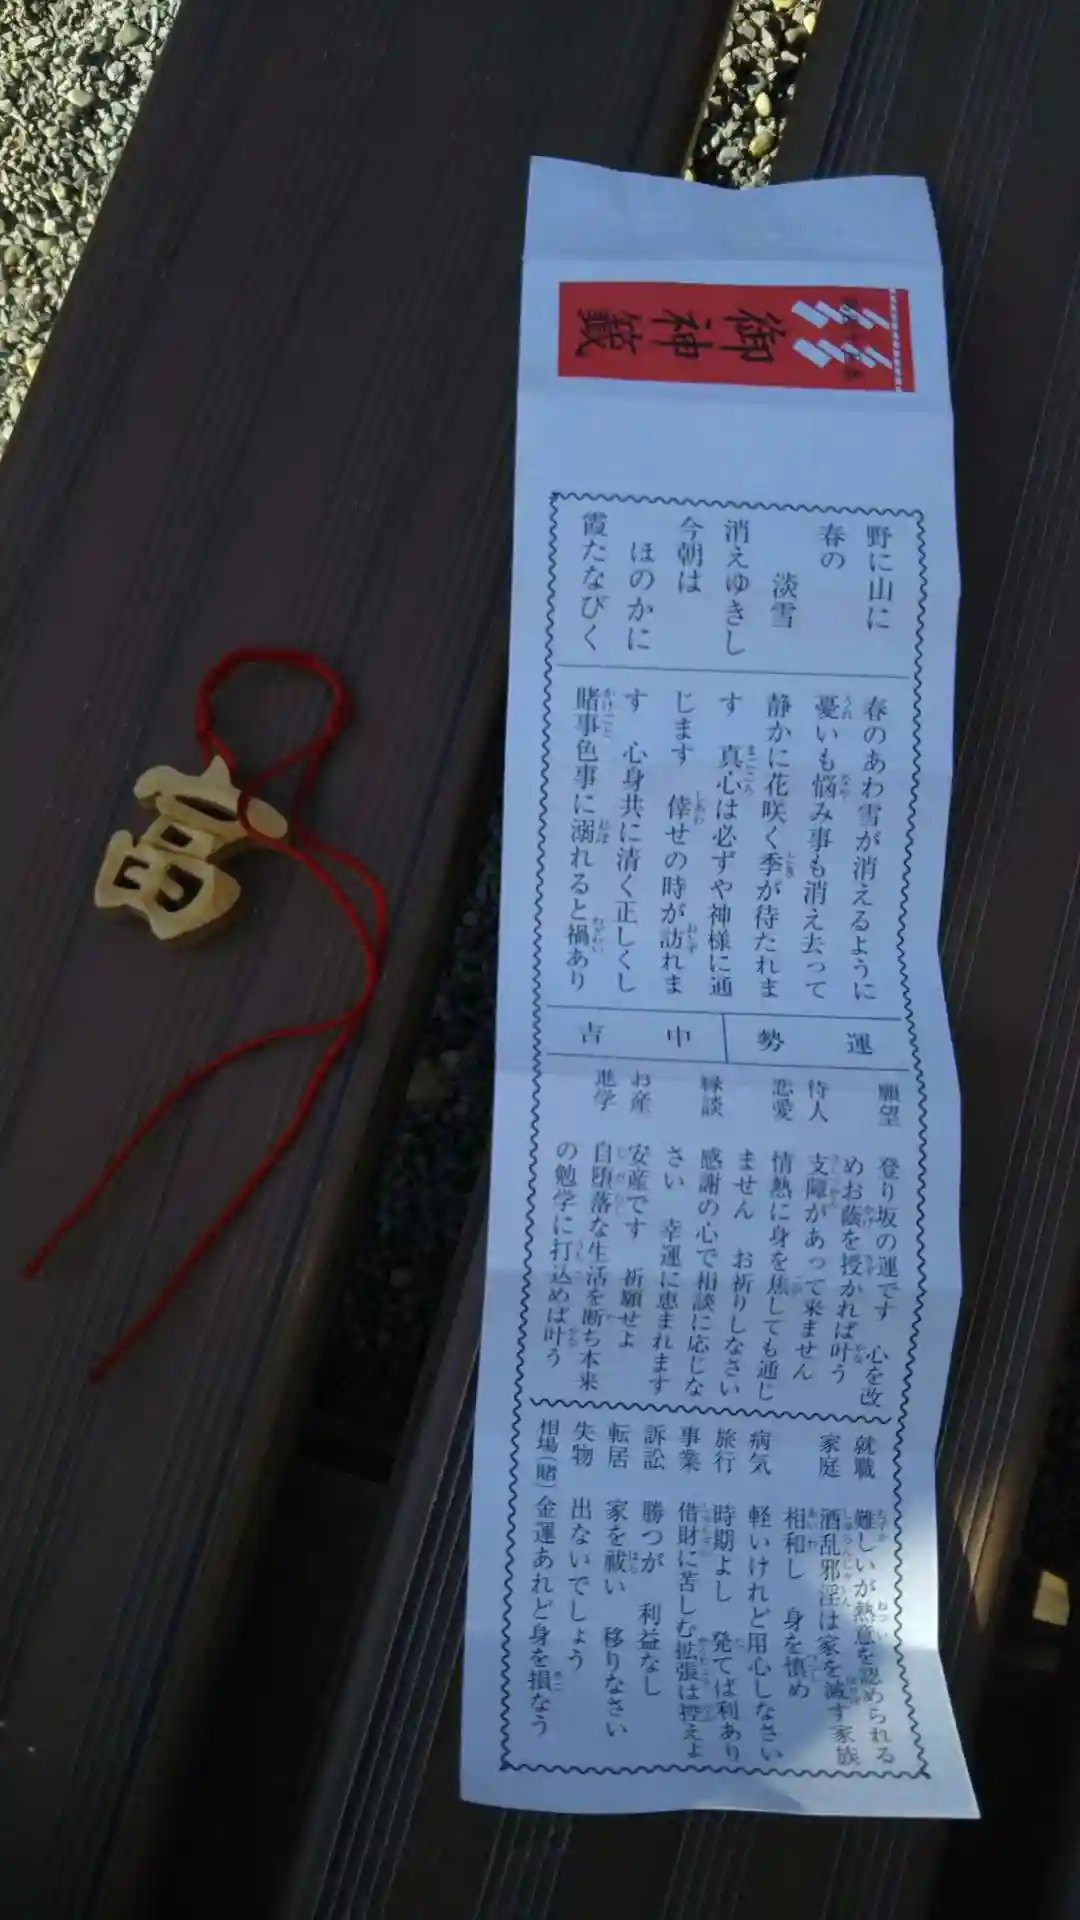 御神籤
野に山に
春の
淡雪
消えゆきし
今朝は
ほのかに
霞たなびく
春のあわ雪が消えるように
憂いも悩み事も消え去って
静かに花咲く季が待たれま
す 真心は必ずや神様に通
じます 倖せの時が訪れま
す 心身共に清く正しくし
賭事色事に溺れると禍あり
運勢 中吉
願望 登り坂の運です 心を改
めお蔭を授かれば叶う
待人 支障があって来ません
恋愛 情熱に身を焦しても通じ
ません お祈りしなさい
縁談 感謝の心で相談に応じな
さい 幸運に恵まれます
お産 安産です 祈願せよ
進学 自堕落な生活を断ち本来
の勉学に打込めば叶う
就職 難しいが熱意を認められる
家庭 酒乱邪淫は家を滅す家族
相和し 身を慎め
病気 軽いけれど用心しなさい
旅行 時期よし 発てば利あり
事業 借財に苦しむ拡張は控えよ
訴訟 勝つが 利益なし
転居 家を祓い 移りなさい
失物 出ないでしょう
相場(賭) 金運あれど身を損なう
富